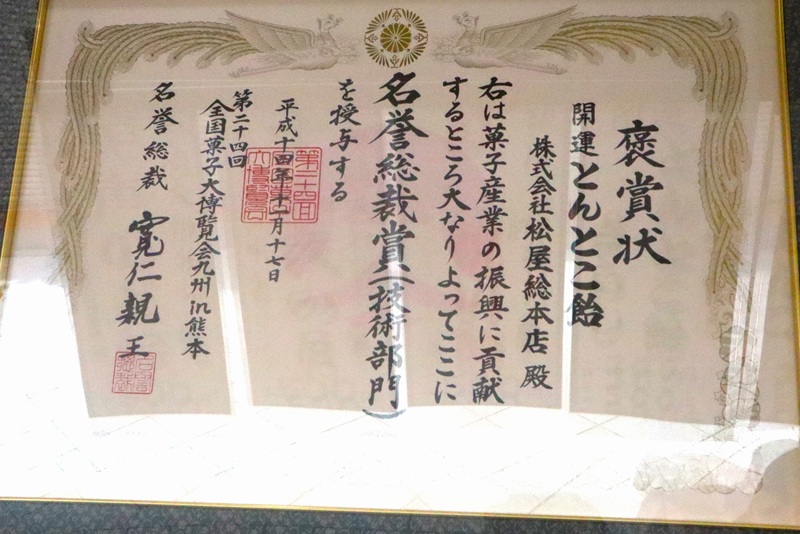 褒賞状
開運とんとこ飴
株式会社松屋総本店殿
右は菓子産業の振興に貢献
するところ大なりよってここに
名誉総裁賞(技術部門)
を授与する
平成十四年十二月十七日
第二十四回
全国菓子大博覧会九州in熊本
名誉総裁 寛仁親王